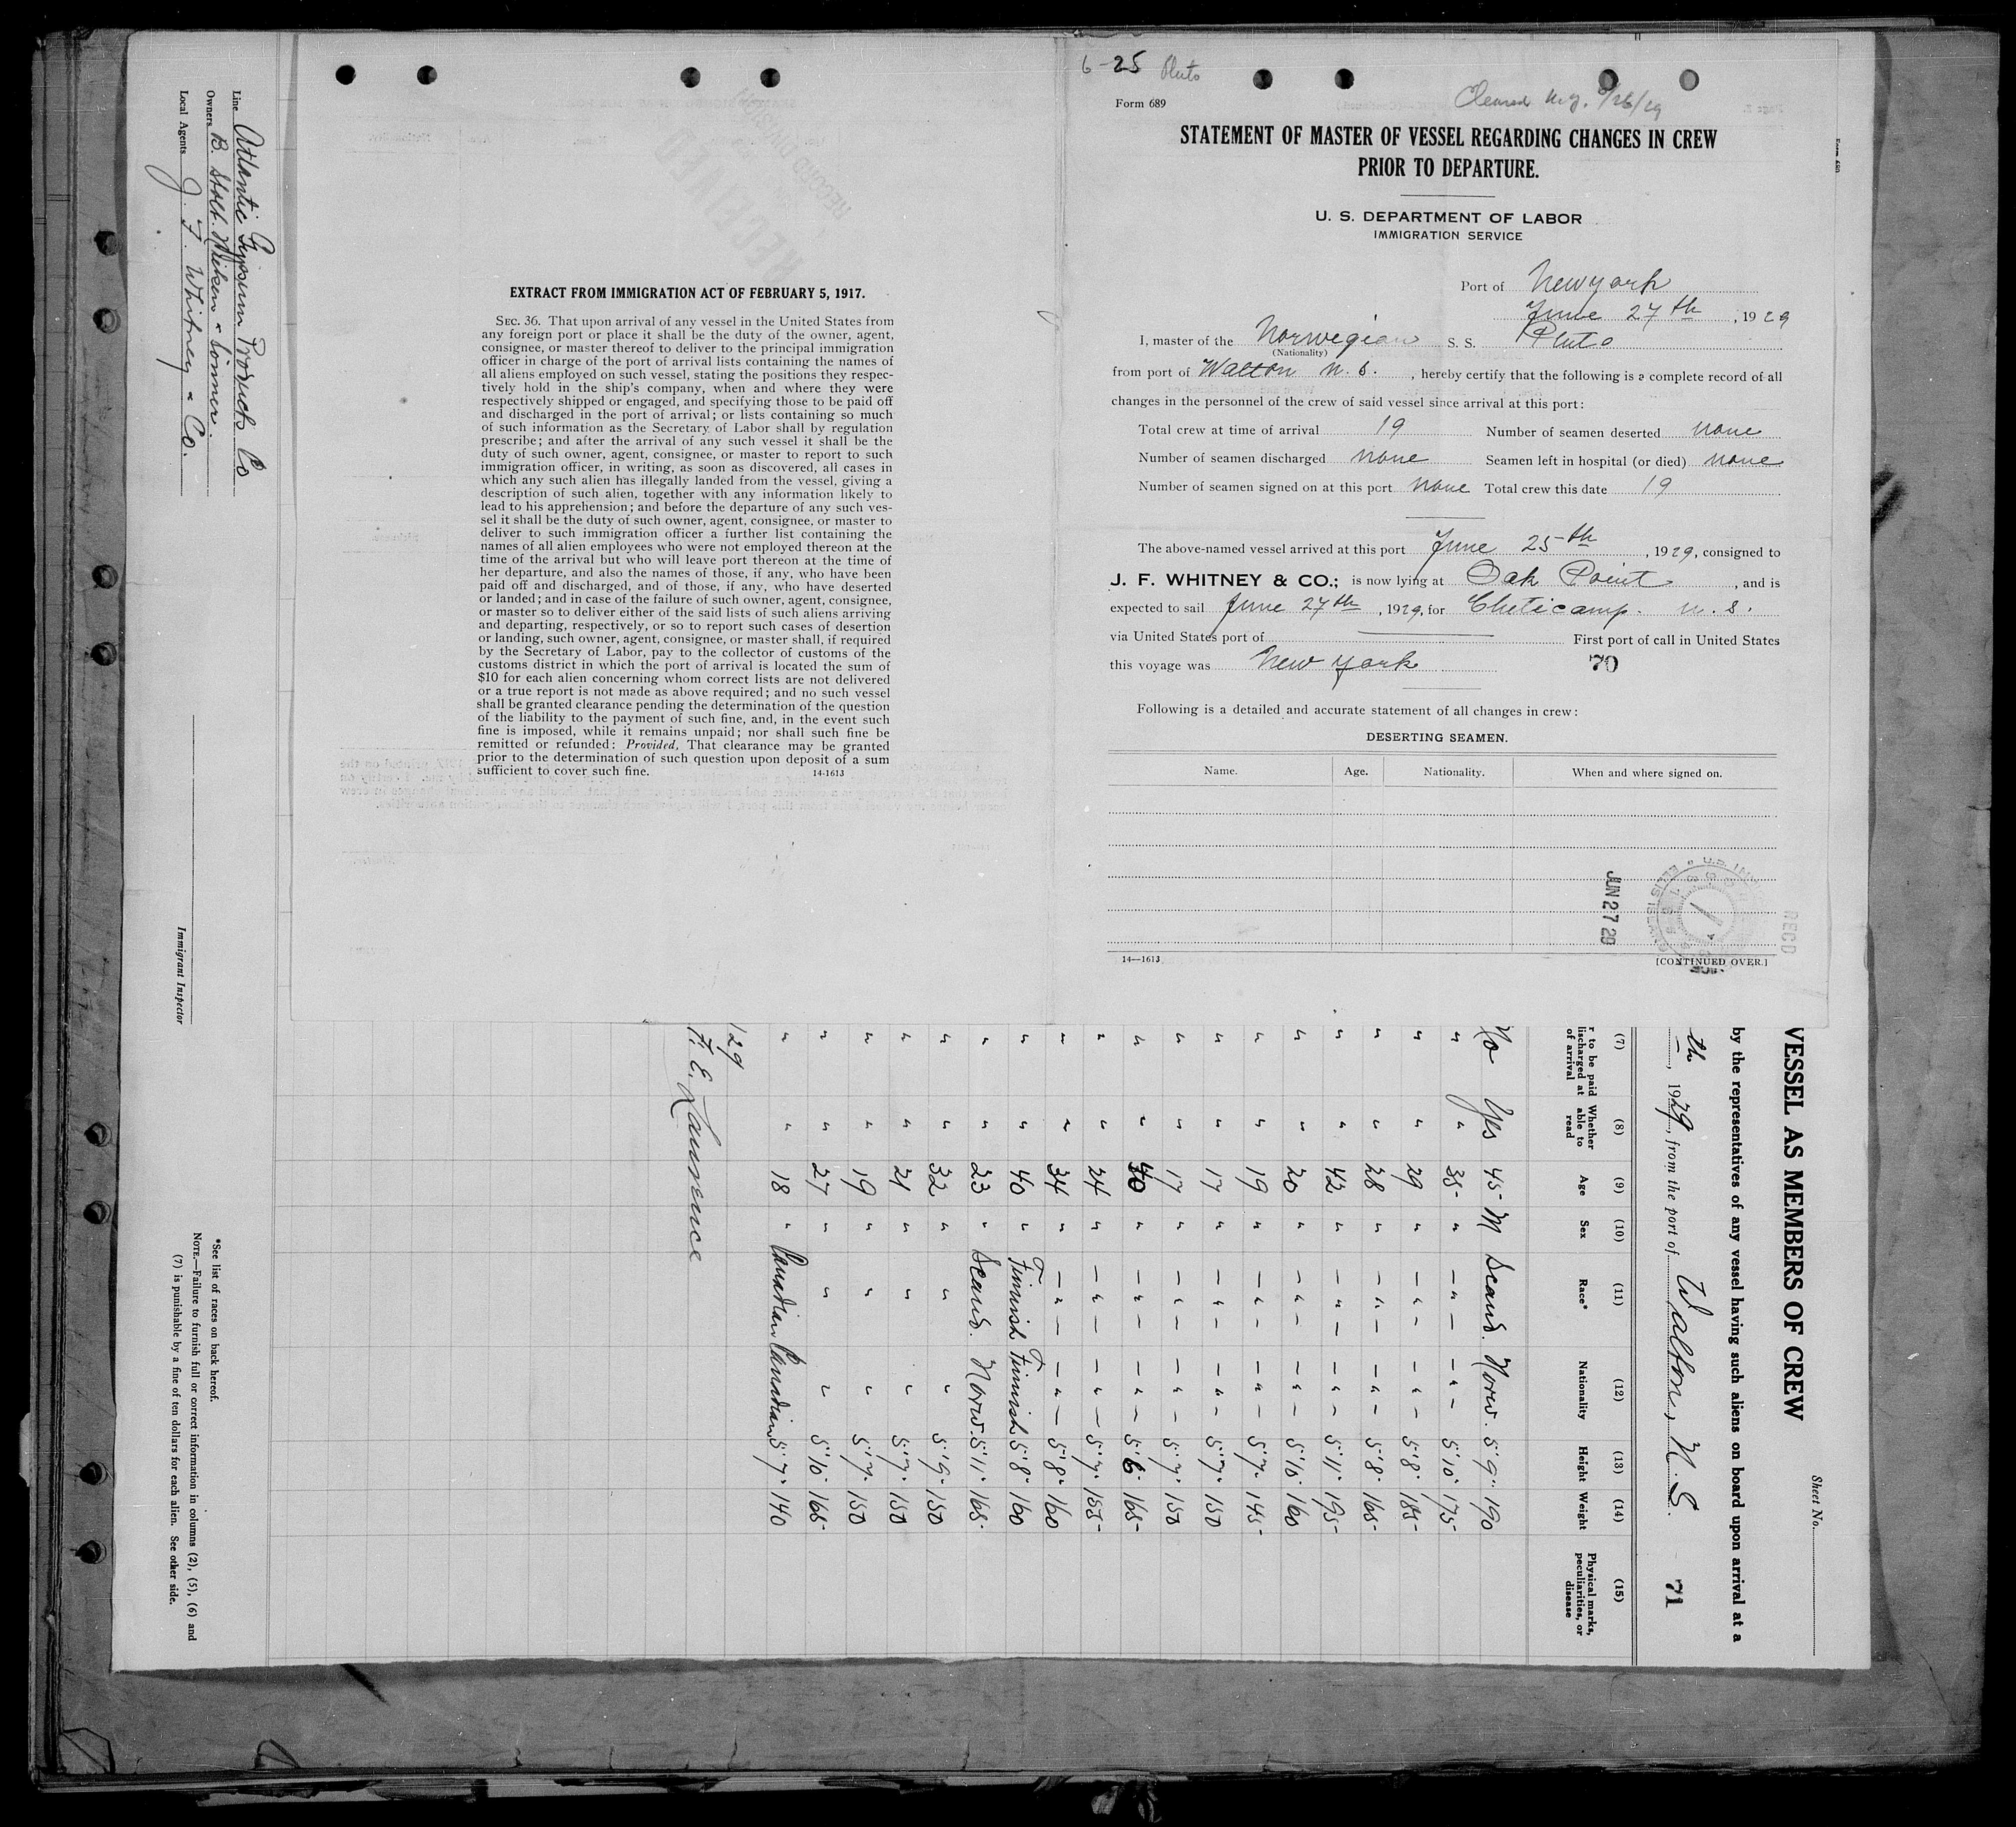 6-25 Pluto
Form 689
Cleared N.Y. 6/26/29
STATEMENT OF MASTER OF VESSEL REGARDING CHANGES IN CREW
PRIOR TO DEPARTURE.
U. S. DEPARTMENT OF LABOR
IMMIGRATION SERVICE
Port of New york
June 27th, 1929
I, master of the Norwegian S. S. Pluto
(Nationality)
from port of Walton N. S., hereby certify that the following is a complete record of all
changes in the personnel of the crew of said vessel since arrival at this port:
Total crew at time of arrival 19 Number of seamen deserted none
Number of seamen discharged none Seamen left in hospital (or died) none
Number of seamen signed on at this port none Total crew this date 19
The above-named vessel arrived at this port June 25th, 1929, consigned to
J. F. WHITNEY & CO.; is now lying at Oak Point, and is
expected to sail June 27th, 1929, for Cheticamp. N. S.
via United States port of First port of call in United States
this voyage was New york 70
Following is a detailed and accurate statement of all changes in crew:
DESERTING SEAMEN.
Name. Age. Nationality. When and where signed on.
JUN 27 29
REC'D
14—1613 [CONTINUED OVER.]
RECEIVED
RECORD DIVISION
EXTRACT FROM IMMIGRATION ACT OF FEBRUARY 5, 1917.
SEC. 36. That upon arrival of any vessel in the United States from
any foreign port or place it shall be the duty of the owner, agent,
consignee, or master thereof to deliver to the principal immigration
officer in charge of the port of arrival lists containing the names of
all aliens employed on such vessel, stating the positions they respec-
tively hold in the ship's company, when and where they were
respectively shipped or engaged, and specifying those to be paid off
and discharged in the port of arrival; or lists containing so much
of such information as the Secretary of Labor shall by regulation
prescribe; and after the arrival of any such vessel it shall be the
duty of such owner, agent, consignee, or master to report to such
immigration officer, in writing, as soon as discovered, all cases in
which any such alien has illegally landed from the vessel, giving a
description of such alien, together with any information likely to
lead to his apprehension; and before the departure of any such ves-
sel it shall be the duty of such owner, agent, consignee, or master to
deliver to such immigration officer a further list containing the
names of all alien employees who were not employed thereon at the
time of the arrival but who will leave port thereon at the time of
her departure, and also the names of those, if any, who have been
paid off and discharged, and of those, if any, who have deserted
or landed; and in case of the failure of such owner, agent, consignee,
or master so to deliver either of the said lists of such aliens arriving
and departing, respectively, or so to report such cases of desertion
or landing, such owner, agent, consignee, or master shall, if required
by the Secretary of Labor, pay to the collector of customs of the
customs district in which the port of arrival is located the sum of
$10 for each alien concerning whom correct lists are not delivered
or a true report is not made as above required; and no such vessel
shall be granted clearance pending the determination of the question
of the liability to the payment of such fine, and, in the event such
fine is imposed, while it remains unpaid; nor shall such fine be
remitted or refunded: Provided, That clearance may be granted
prior to the determination of such question upon deposit of a sum
sufficient to cover such fine. 14-1613
Sheet No.
VESSEL AS MEMBERS OF CREW
by the representatives of any vessel having such aliens on board upon arrival at a
th, 1929, from the port of Walton, N. S. 71
(7) (8) (9) (10) (11) (12) (13) (14) (15)
r to be paid Whether Age Sex Race* Nationality Height Weight Physical marks,
discharged at able to peculiarities, or
of arrival read disease
No Yes 45 M Scand. Norw. 5'9" 190
" " 35 " — " — — " — 5'10" 175
" " 29 " — " — — " — 5'8" 185
" " 28 " — " — — " — 5'8" 165
" " 42 " — " — — " — 5'11" 195
" " 20 " — " — — " — 5'10" 160
" " 19 " — " — — " — 5'7" 145
" " 17 " — " — — " — 5'7" 150
" " 17 " — " — — " — 5'7" 150
" " 40 " — " — — " — 5'6" 165
" " 24 " — " — — " — 5'7" 155
" " 34 " — " — — " — 5'8" 160
" " 40 " Finnish Finnish 5'8" 160
" " 23 " Scand. Norw. 5'11" 165
" " 32 " " " 5'9" 150
" " 21 " " " 5'7" 150
" " 19 " " " 5'7" 150
" " 27 " " " 5'10" 165
" " 18 " Canadian Canadian 5'7" 140
129
F. E. Lawrence
Line Atlantic Gypsum Products Co
Owners B. Stolt.
Local Agents J. F. Whitney & Co.
Immigrant Inspector
*See list of races on back hereof.
NOTE.—Failure to furnish full or correct information in columns (2), (5), (6) and
(7) is punishable by a fine of ten dollars for each alien. See other side.